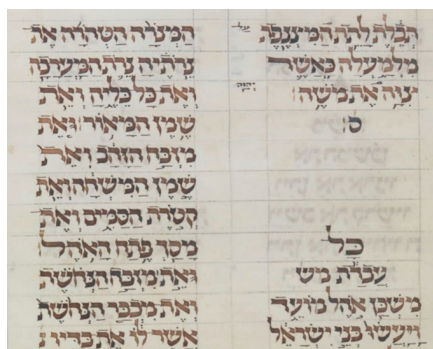 תכלת לתת המצנפת
על
מלמעלה כאשר
יהוה
צוה את משה
ס:
כל
עבדת מש
משכן אהל מועד
ויעשו בני ישראל
המנרה הטהרה את
נרתיה נרת המערכה
ואת כל כליה ואת
שמן המאור ואת
מזבח הזהב ואת
שמן המשחה ואת
קטרת הסמים ואת
מסך פתח האהל
ואת מזבח הנחשת
ואת מכבר הנחשת
אשר לו את בדיו